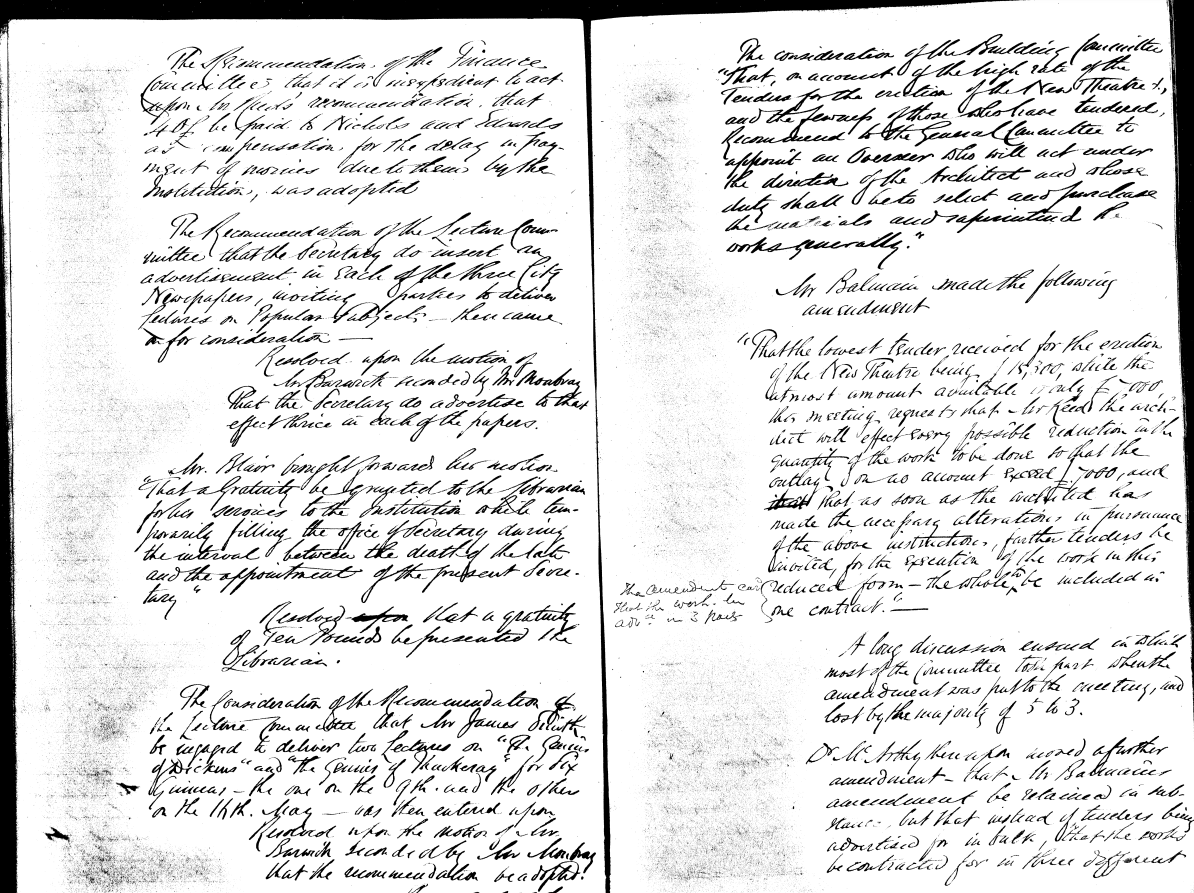 The Recommendation of the Finance
Committee, that it is inexpedient to act
upon Mr Reeds' recommendation that
be paid to Nichols and Edwards
as compensation for the delay in pay-
ment of monies due to them by the
Institution, was adopted
The Recommendation of the Lecture Com-
mittee that the Secretary do insert an
advertisement in each of the three City
Newspapers, inviting parties to deliver
Lectures on Popular Subjects — then came
on for consideration —
Resolved upon the motion of
Mr Barwick seconded by Mr Moubray
That the Secretary do advertise to that
effect thrice in each of the papers.
Mr. Blair brought forward his motion
"That a Gratuity be granted to the Librarian
for his services to the Institution while tem-
porarily filling the office of Secretary during
the interval between the death of the late
and the appointment of the present Secre-
tary"
Resolved upon that a gratuity
of Ten Pounds be presented the
Librarian.
The Consideration of the Recommendation of
the Lecture Committee that Mr James Smith
be engaged to deliver two lectures on "The Genius
of Dickens" and "the Genius of Thackeray" for Six
Guineas — the one on the 9th. and the other
on the 16th. May — was then entered upon
Resolved upon the motion of Mr.
Barwick seconded by Mr Moubray
that the recommendation be adopted.
The consideration of the Building Committee
"That, on account of the high rate of the
Tenders for the erection of the New Theatre &,
and the fewness of those who have tendered,
Recommend to the General Committee to
appoint an Overseer who will act under
the direction of the Architect and whose
duty shall be to select and purchase
the materials and superintend the
works generally."
Mr Balmain made the following
amendment
"That the lowest tender received for the erection
of the New Theatre being while the
utmost amount available is only
this meeting requests that Mr Reed the arch-
itect will effect every possible reduction in the
quantity of the work to be done so that the
outlay on no account exceed £7000, and
that that as soon as the architect has
made the necessary alterations in pursuance
of the above instructions, further tenders be
invited, for the execution of the work in this
reduced form — the whole to be included in
one contract." —
The amendment
that the work be
in 3 parts
A long discussion ensued in which
most of the Committee took part when the
amendment was put to the meeting, and
lost by the majority of 5 to 3.
Dr McArthy thereupon moved a further
amendment — that Mr Balmains
amendment be retained in sub-
stance, but that instead of tenders being
advertised for in bulk, that the works
be contracted for in three different